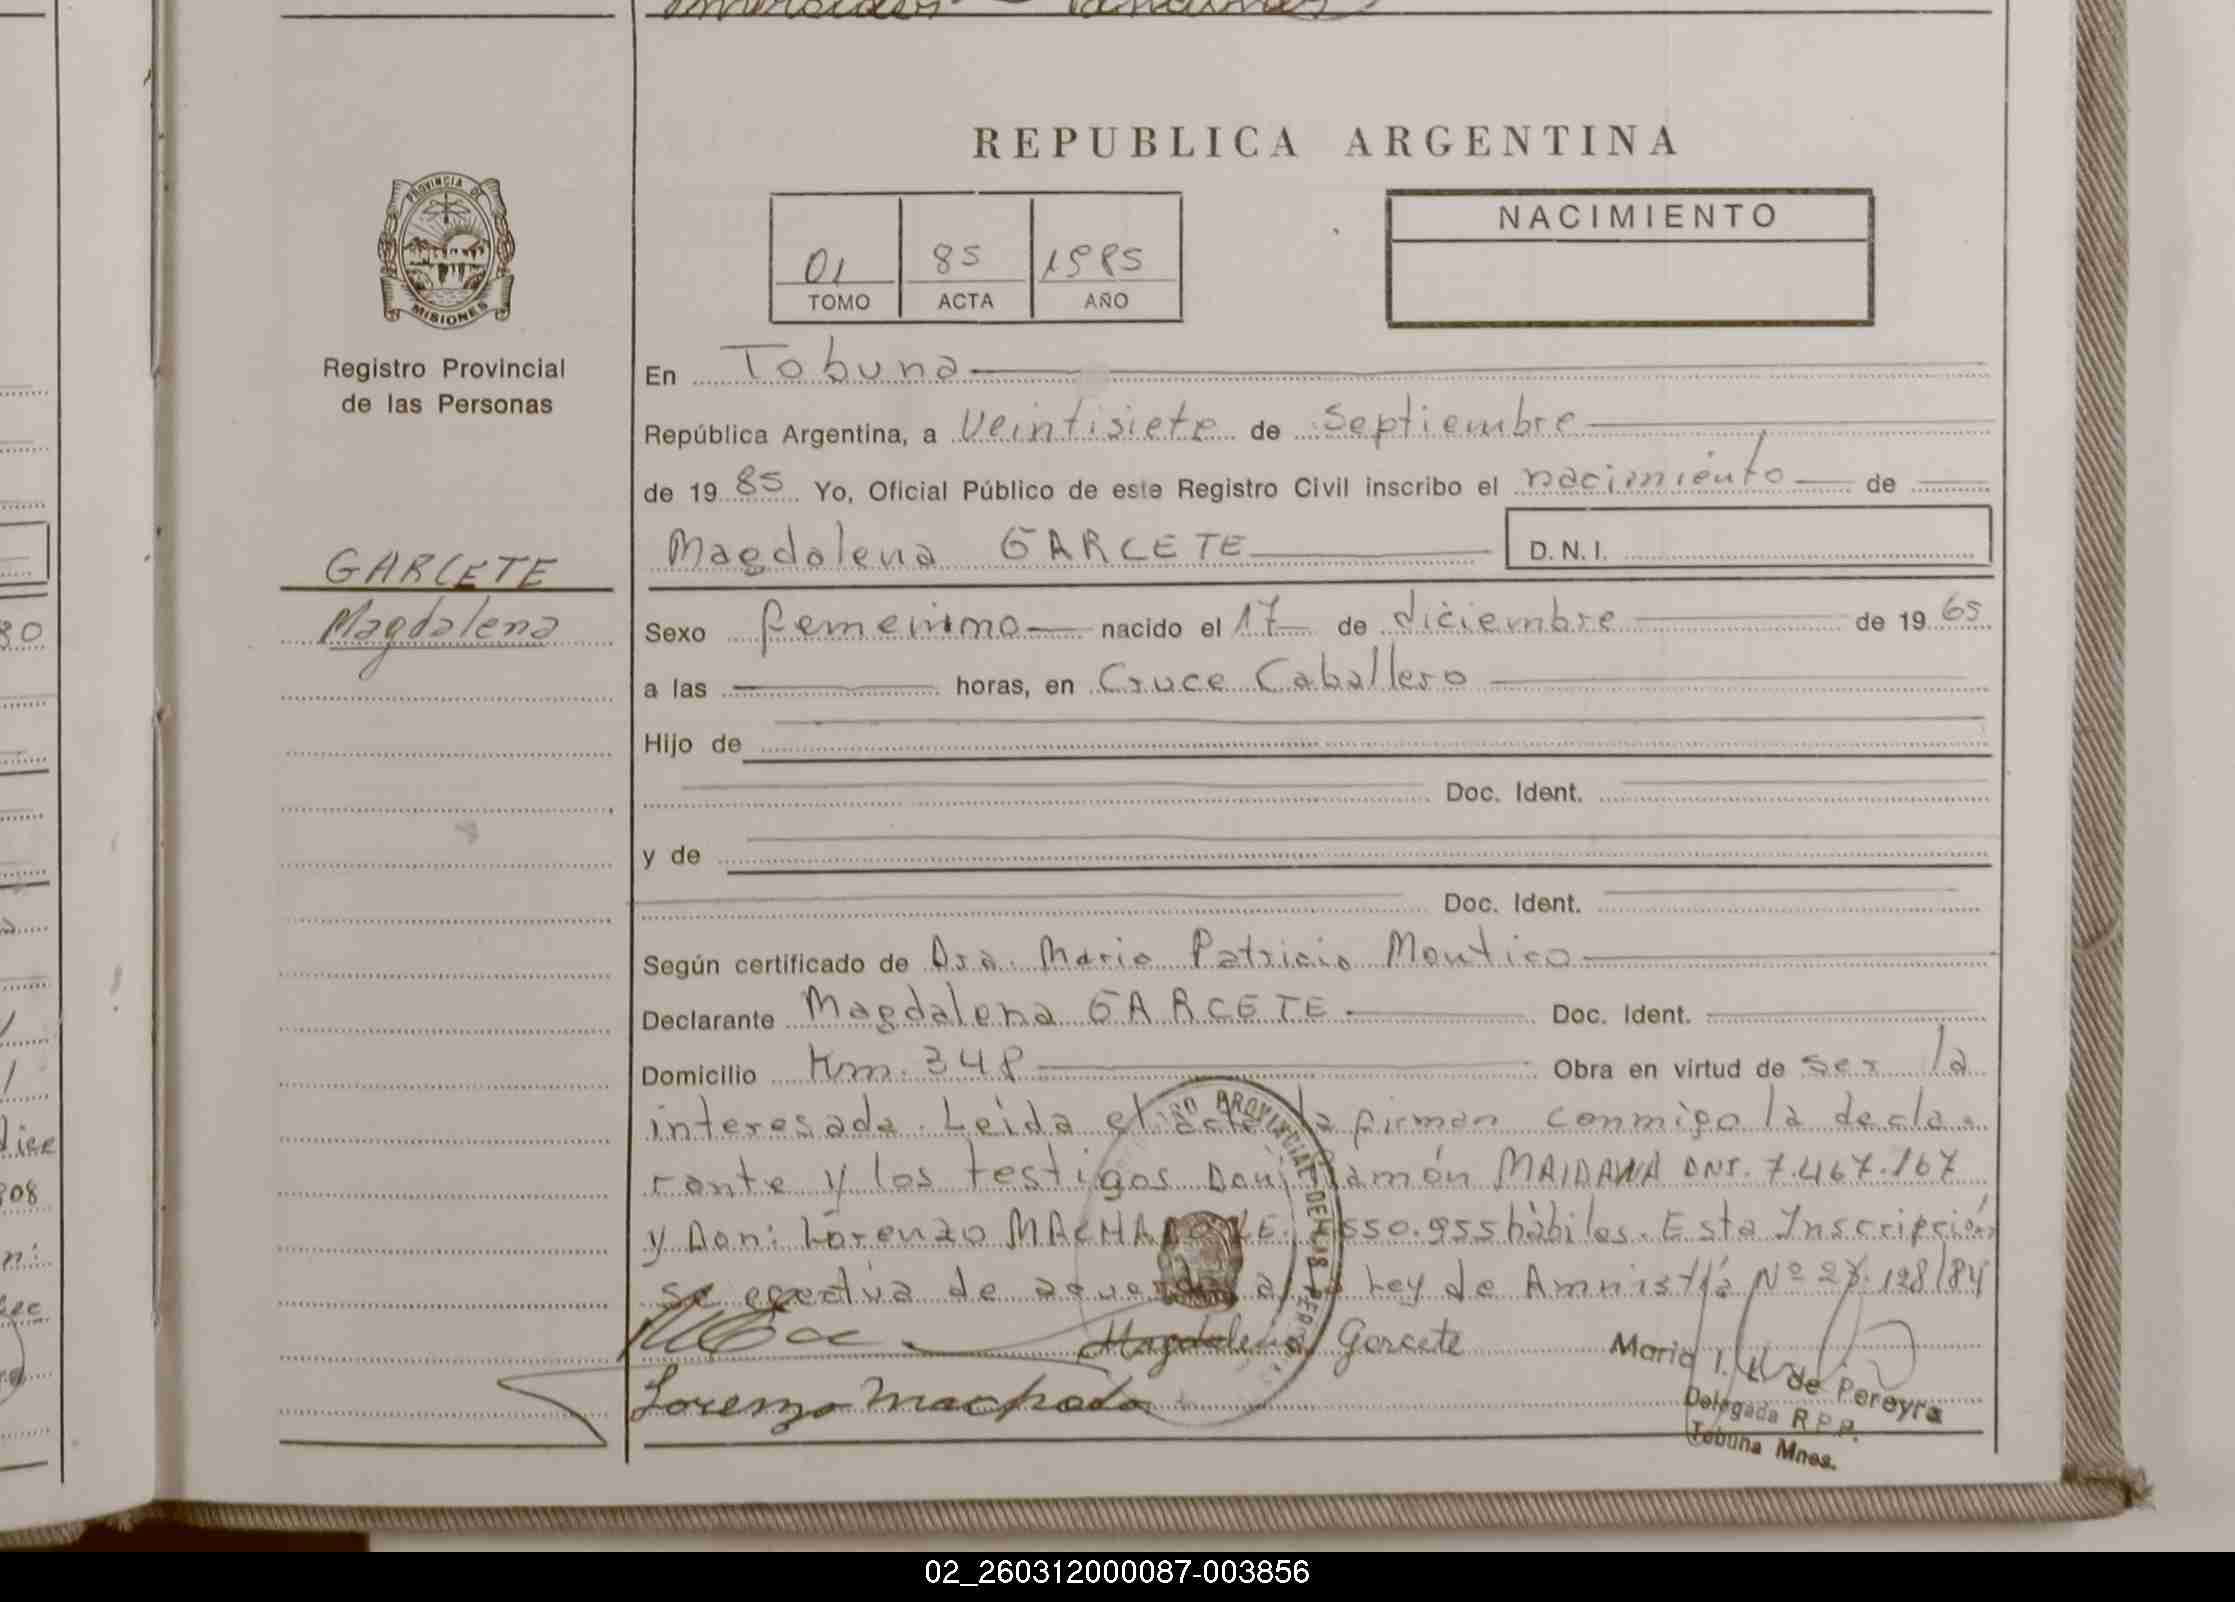 REPUBLICA ARGENTINA
PROVINCIA DE
MISIONES
Registro Provincial
de las Personas
01 85 1985
TOMO ACTA AÑO
NACIMIENTO
GARCETE
Magdalena
En Tobuna
República Argentina, a veintisiete de septiembre
de 1985 Yo, Oficial Público de este Registro Civil inscribo el nacimiento de
Magdalena GARCETE D.N.I.
Sexo femenino nacido el 17 de diciembre de 1965
a las horas, en Cruce Caballero
Hijo de
Doc. Ident.
y de
Doc. Ident.
Según certificado de Dra. Maria Patricia
Declarante Magdalena GARCETE Doc. Ident.
Domicilio Km. 348 Obra en virtud de ser la
interesada. Leída el acta la firman conmigo la decla-
rante y los testigos Don: Ramón MAIDANA DNI. 7.467.167
y Don: Lorenzo MACHADO hábiles. Esta Inscripción
se de acuerdo a la Ley de Amnistía Nº 128/84
Magdalena Garcete
Lorenzo Machado
Maria I. de Pereyra
Delegada R.P.P.
Tobuna Mnes.
02_260312000087-003856